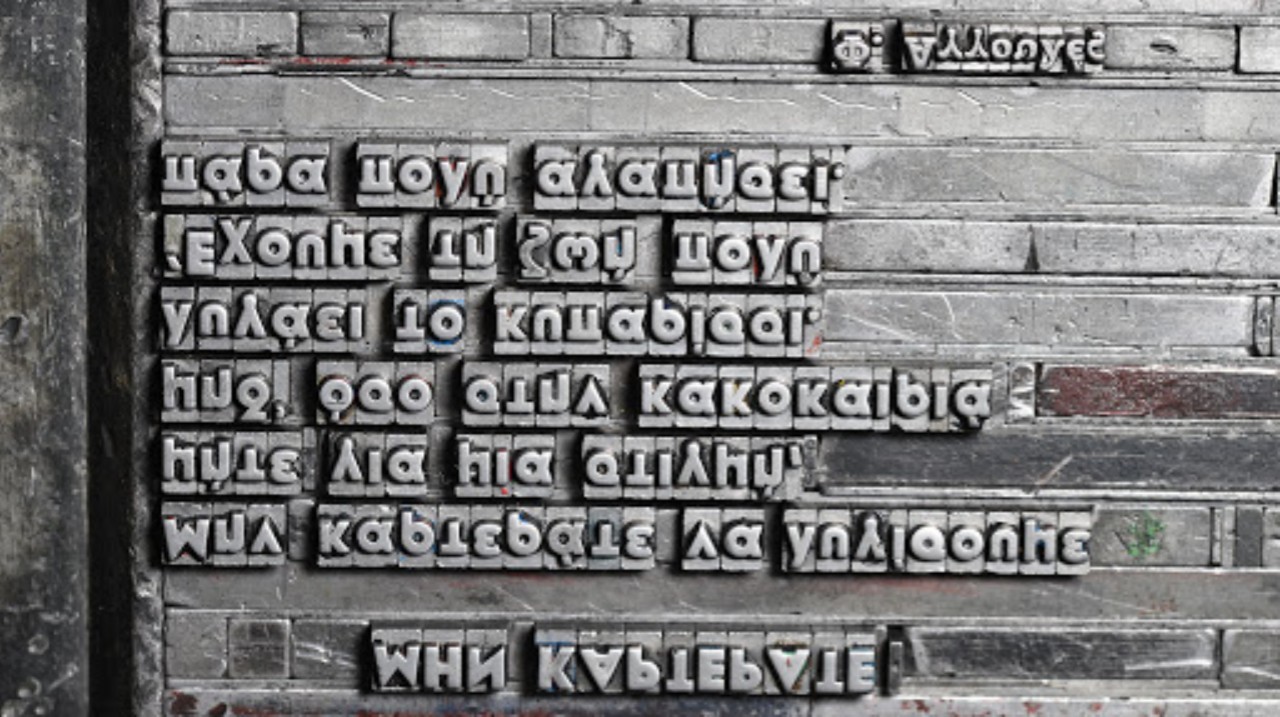 ΜΗΝ ΚΑΡΤΕΡΑΤΕ
Μην καρτεράτε να λυγίσουμε
μήτε για μια στιγμή,
μηδ' όσο στην κακοκαιριά
λυγάει το κυπαρίσσι.
Έχουμε τη ζωή πολύ
πάρα πολύ αγαπήσει.
Φ. Αγγουλές